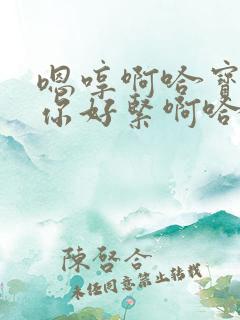 嗯哼啊哈寶
你好緊啊哈
陳啓合
未经同意禁止转载